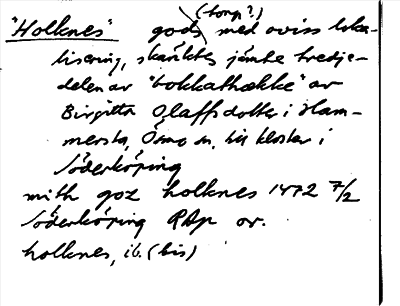 (torp?)
"Holknes" gods med oviss loka-
lisering, skänktes jämte tredje-
delen av "bokkathække" av
Birgitta Olaffsdotter i Ham-
mersta, Ösmo sn, till kloster i
Söderköping
mith goz holknes 1472 7/2
Söderköping RAp or.
holknes, ib. (bis)